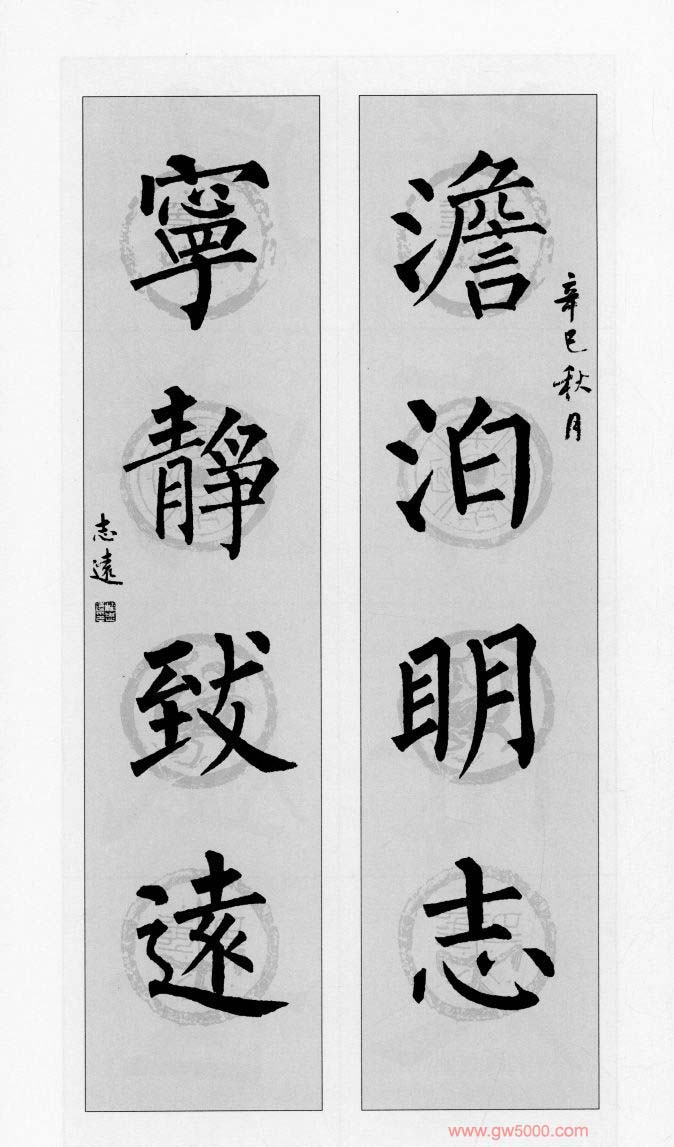 辛巳秋月
澹泊明志
寧靜致遠
志遠
www.gw5000.com